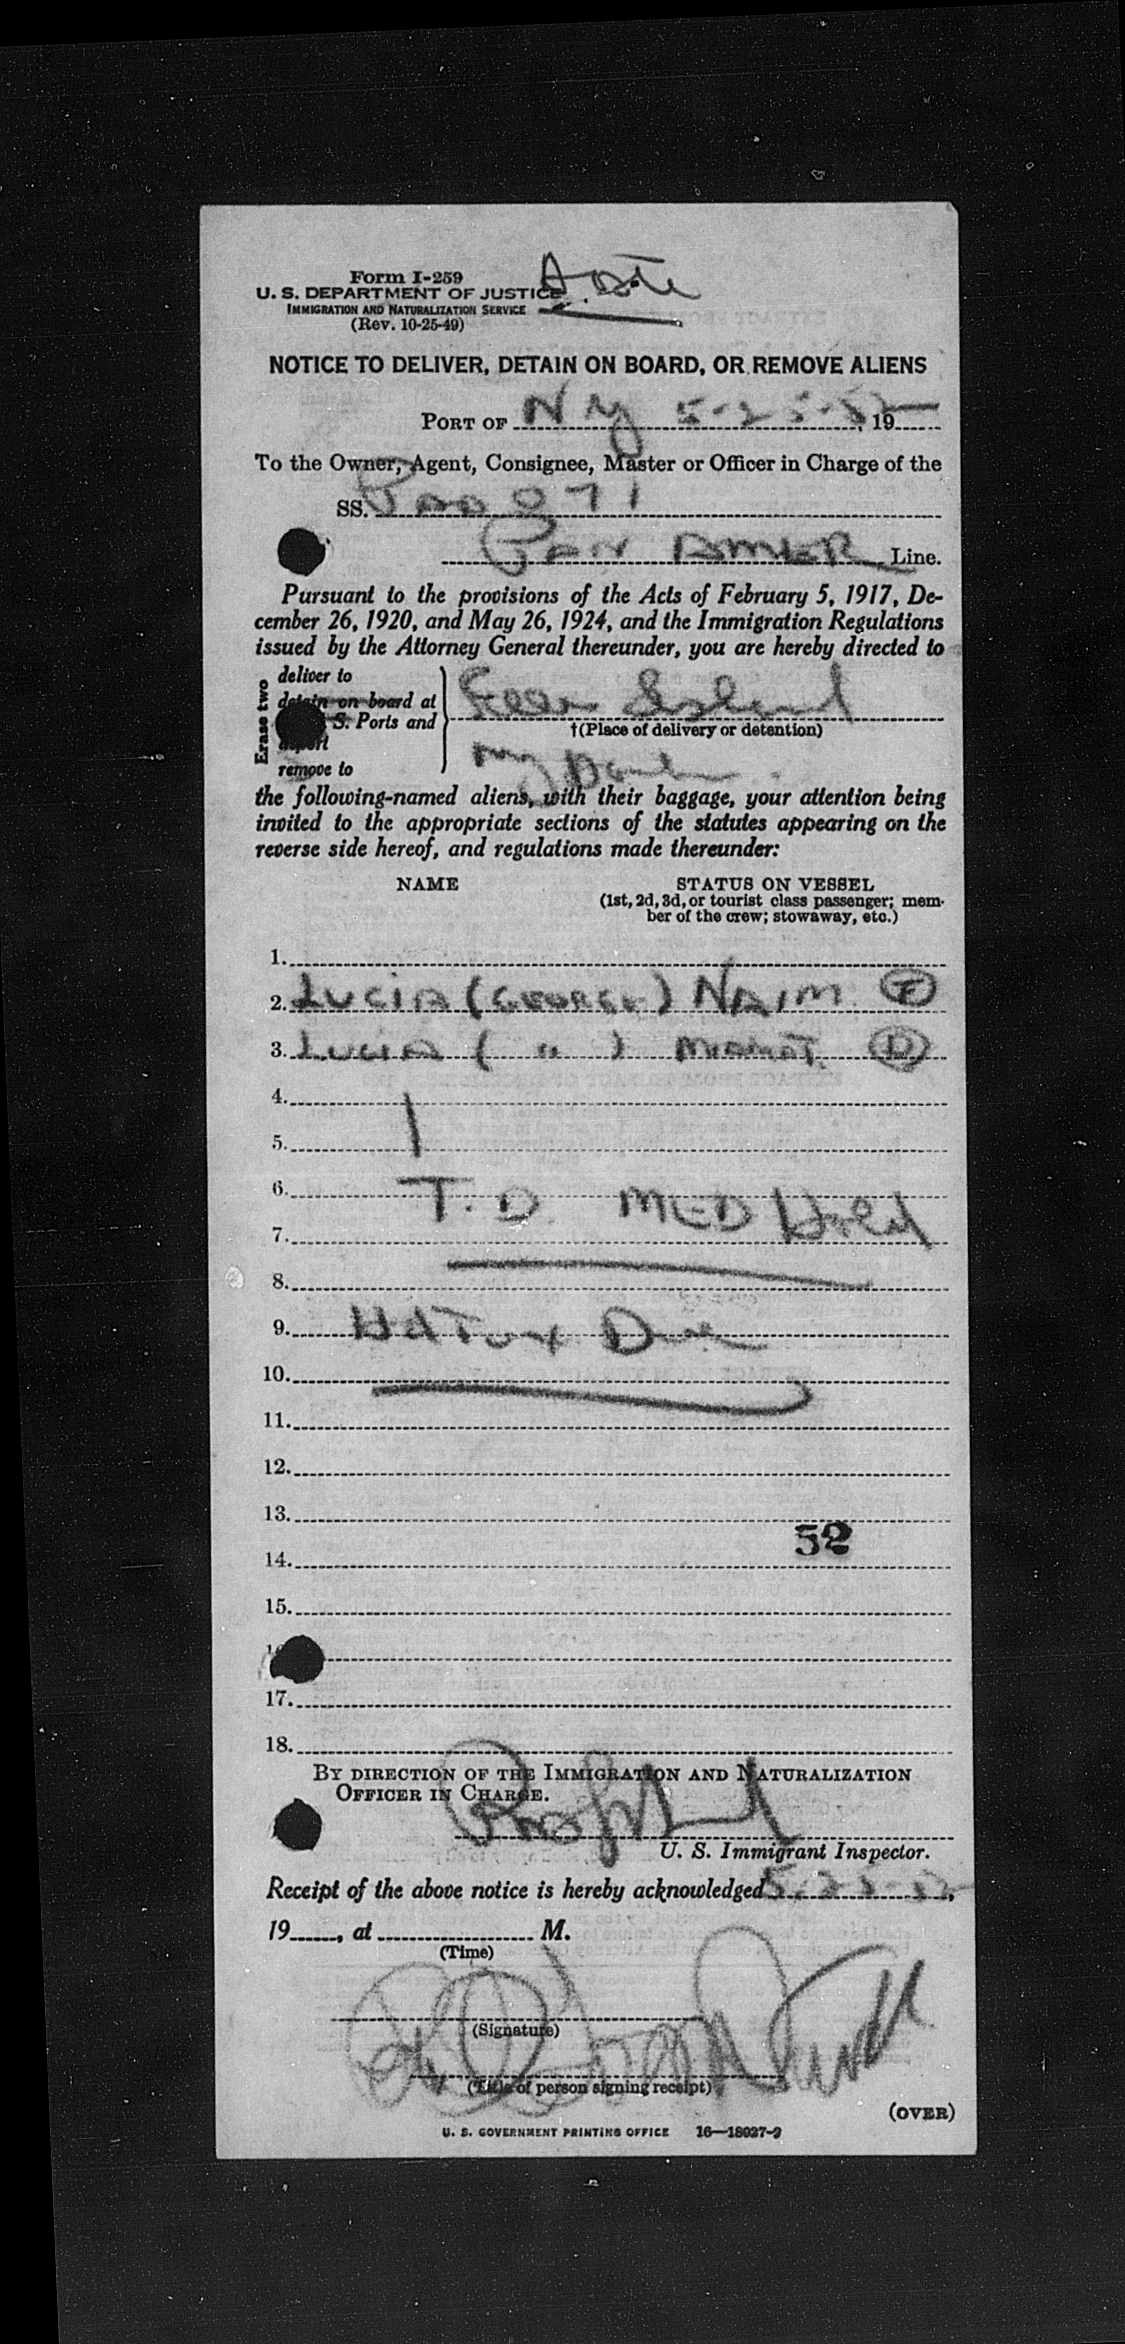 Form I-259
U. S. DEPARTMENT OF JUSTICE
IMMIGRATION AND NATURALIZATION SERVICE
(Rev. 10-25-49)
NOTICE TO DELIVER, DETAIN ON BOARD, OR REMOVE ALIENS
PORT OF NY 5-25-52, 19
To the Owner, Agent, Consignee, Master or Officer in Charge of the
SS. 071
PAN AMER Line.
Pursuant to the provisions of the Acts of February 5, 1917, De-
cember 26, 1920, and May 26, 1924, and the Immigration Regulations
issued by the Attorney General thereunder, you are hereby directed to
Erase two
deliver to
detain on board at
S. Ports and
remove to
Island
†(Place of delivery or detention)
the following-named aliens, with their baggage, your attention being
invited to the appropriate sections of the statutes appearing on the
reverse side hereof, and regulations made thereunder:
NAME STATUS ON VESSEL
(1st, 2d, 3d, or tourist class passenger; mem-
ber of the crew; stowaway, etc.)
1.
2. LUCIA (GEORGE) NAIM F
3. LUCIA ( " ) D
4.
5.
6. T.D. MED Hold
7.
8.
9.
10.
11.
12.
13.
52
14.
15.
17.
18.
BY DIRECTION OF THE IMMIGRATION AND NATURALIZATION
OFFICER IN CHARGE.
U. S. Immigrant Inspector.
Receipt of the above notice is hereby acknowledged
19, at M.
(Time)
(Signature)
(Title of person signing receipt)
(OVER)
U. S. GOVERNMENT PRINTING OFFICE 16—18027-2